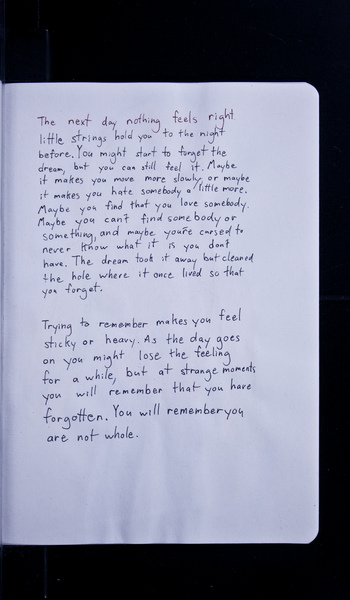 The next day nothing feels right.
little strings hold you to the night
before. You might start to forget the
dream, but you can still feel it. Maybe
it makes you move more slowly or maybe
it makes you hate somebody a little more.
Maybe you find that you love somebody.
Maybe you can't find somebody or
something, and maybe you're cursed to
never know what it is you don't
have. The dream took it away but cleaned
the hole where it once lived so that
you forget.
Trying to remember makes you feel
sticky or heavy. As the day goes
on you might lose the feeling
for a while, but at strange moments
you will remember that you have
forgotten. You will remember you
are not whole.